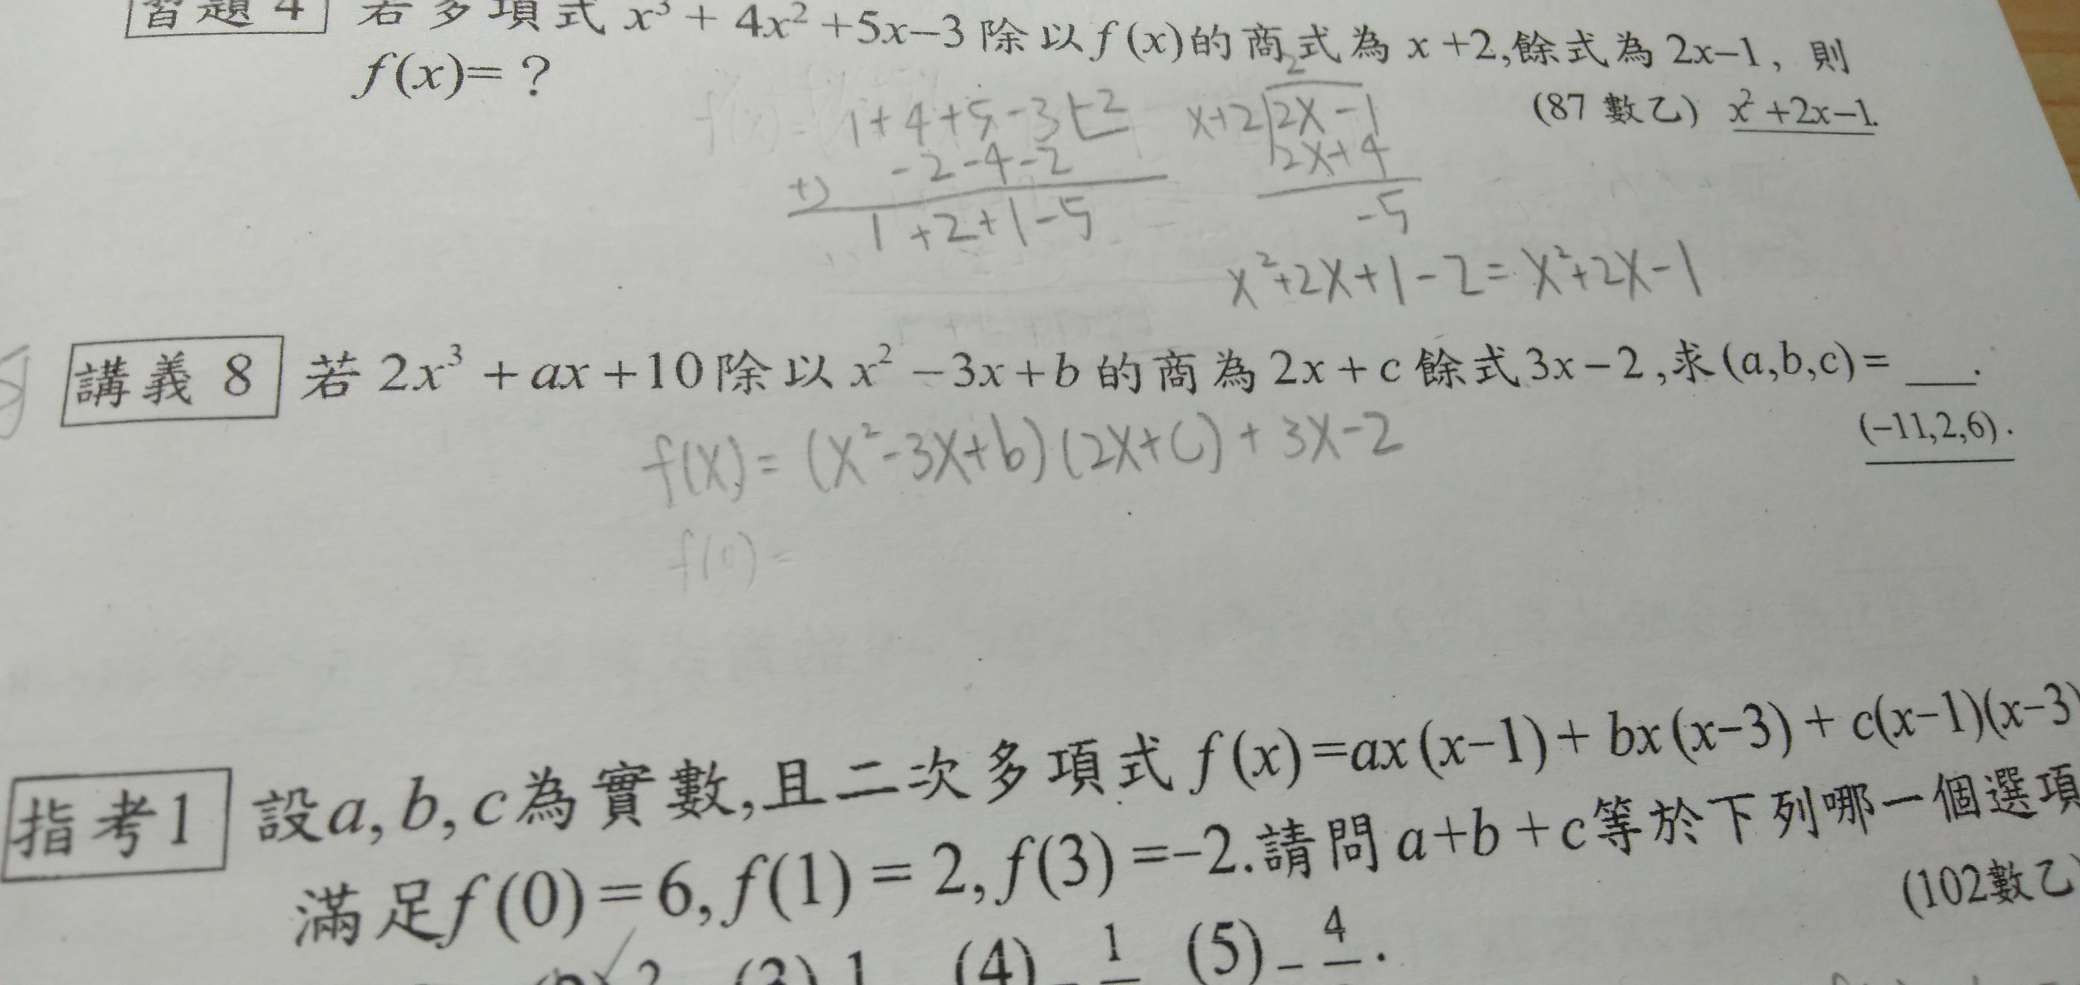 習題 4 若多項式 x³ + 4x² +5x−3 除以 f (x)的商式為 x +2,餘式為 2x−1，則
f(x)=？
(87 數乙) x² +2x−1.
1+4+5-3 -2
-2-4-2
+)
1+2+1-5
2
x+2 2x-1
2x+4
-5
x²+2x+1-2= x²+2x-1
講義 8 若 2x³ + ax +10 除以 x² −3x+b 的商為 2x + c 餘式 3x−2 ,求(a,b,c)= ___.
(−11,2,6).
f(x) = (x²-3x+b)(2x+c) + 3x-2
f(0) =
指考1 設a, b, c為實數,且二次多項式 f (x)=ax (x−1)+ bx (x−3)+ c(x−1)(x−3)
滿足f (0) = 6, f (1) = 2, f (3) =−2.請問 a+b + c等於下列哪一個選項
(102數乙)
(4) − 1 (5) − 4 .